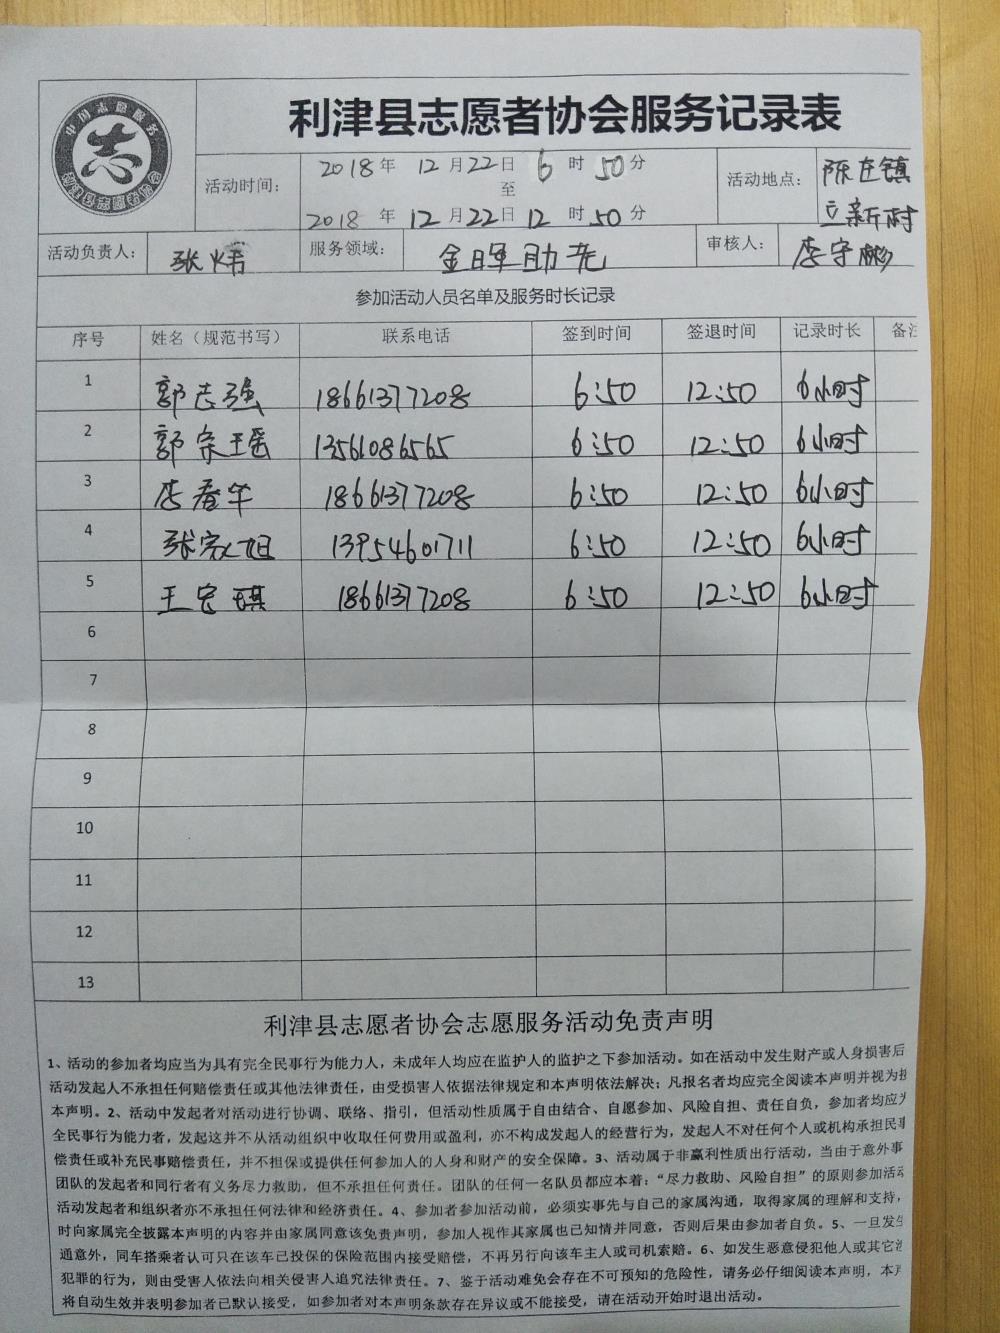 中国志愿服务
志
利津县志愿者协会服务记录表
活动时间: 2018年 12月22日 6时50分
至
2018年 12月22日 12时50分
活动地点: 陈庄镇
立新村
活动负责人: 张炜 服务领域: 金晖助老 审核人: 李守彬
参加活动人员名单及服务时长记录
序号 姓名（规范书写） 联系电话 签到时间 签退时间 记录时长 备注
1 郭志强 18661377208 6:50 12:50 6小时
2 郭宗瑶 13561086565 6:50 12:50 6小时
3 李春华 18661377208 6:50 12:50 6小时
4 张 13954601711 6:50 12:50 6小时
5 王宏琪 18661377208 6:50 12:50 6小时
6
7
8
9
10
11
12
13
利津县志愿者协会志愿服务活动免责声明
1、活动的参加者均应当为具有完全民事行为能力人，未成年人均应在监护人的监护之下参加活动。如在活动中发生财产或人身损害后
活动发起人不承担任何赔偿责任或其他法律责任，由受损害人依据法律规定和本声明依法解决；凡报名者均应完全阅读本声明并视为接
本声明。2、活动中发起者对活动进行协调、联络、指引，但活动性质属于自由结合、自愿参加、风险自担、责任自负，参加者均应为
全民事行为能力者，发起这并不从活动组织中收取任何费用或盈利，亦不构成发起人的经营行为，发起人不对任何个人或机构承担民事
偿责任或补充民事赔偿责任，并不担保或提供任何参加人的人身和财产的安全保障。3、活动属于非赢利性质出行活动，当由于意外事
团队的发起者和同行者有义务尽力救助，但不承担任何责任。团队的任何一名队员都应本着：“尽力救助、风险自担”的原则参加活动
活动发起者和组织者亦不承担任何法律和经济责任。4、参加者参加活动前，必须实事先与自己的家属沟通，取得家属的理解和支持，
时向家属完全披露本声明的内容并由家属同意该免责声明，参加人视作其家属也已知情并同意，否则后果由参加者自负。5、一旦发生
通意外，同车搭乘者认可只在该车已投保的保险范围内接受赔偿，不再另行向该车主人或司机索赔。6、如发生恶意侵犯他人或其它
犯罪的行为，则由受害人依法向相关侵害人追究法律责任。7、鉴于活动难免会存在不可预知的危险性，请务必仔细阅读本声明，本声
将自动生效并表明参加者已默认接受，如参加者对本声明条款存在异议或不能接受，请在活动开始时退出活动。